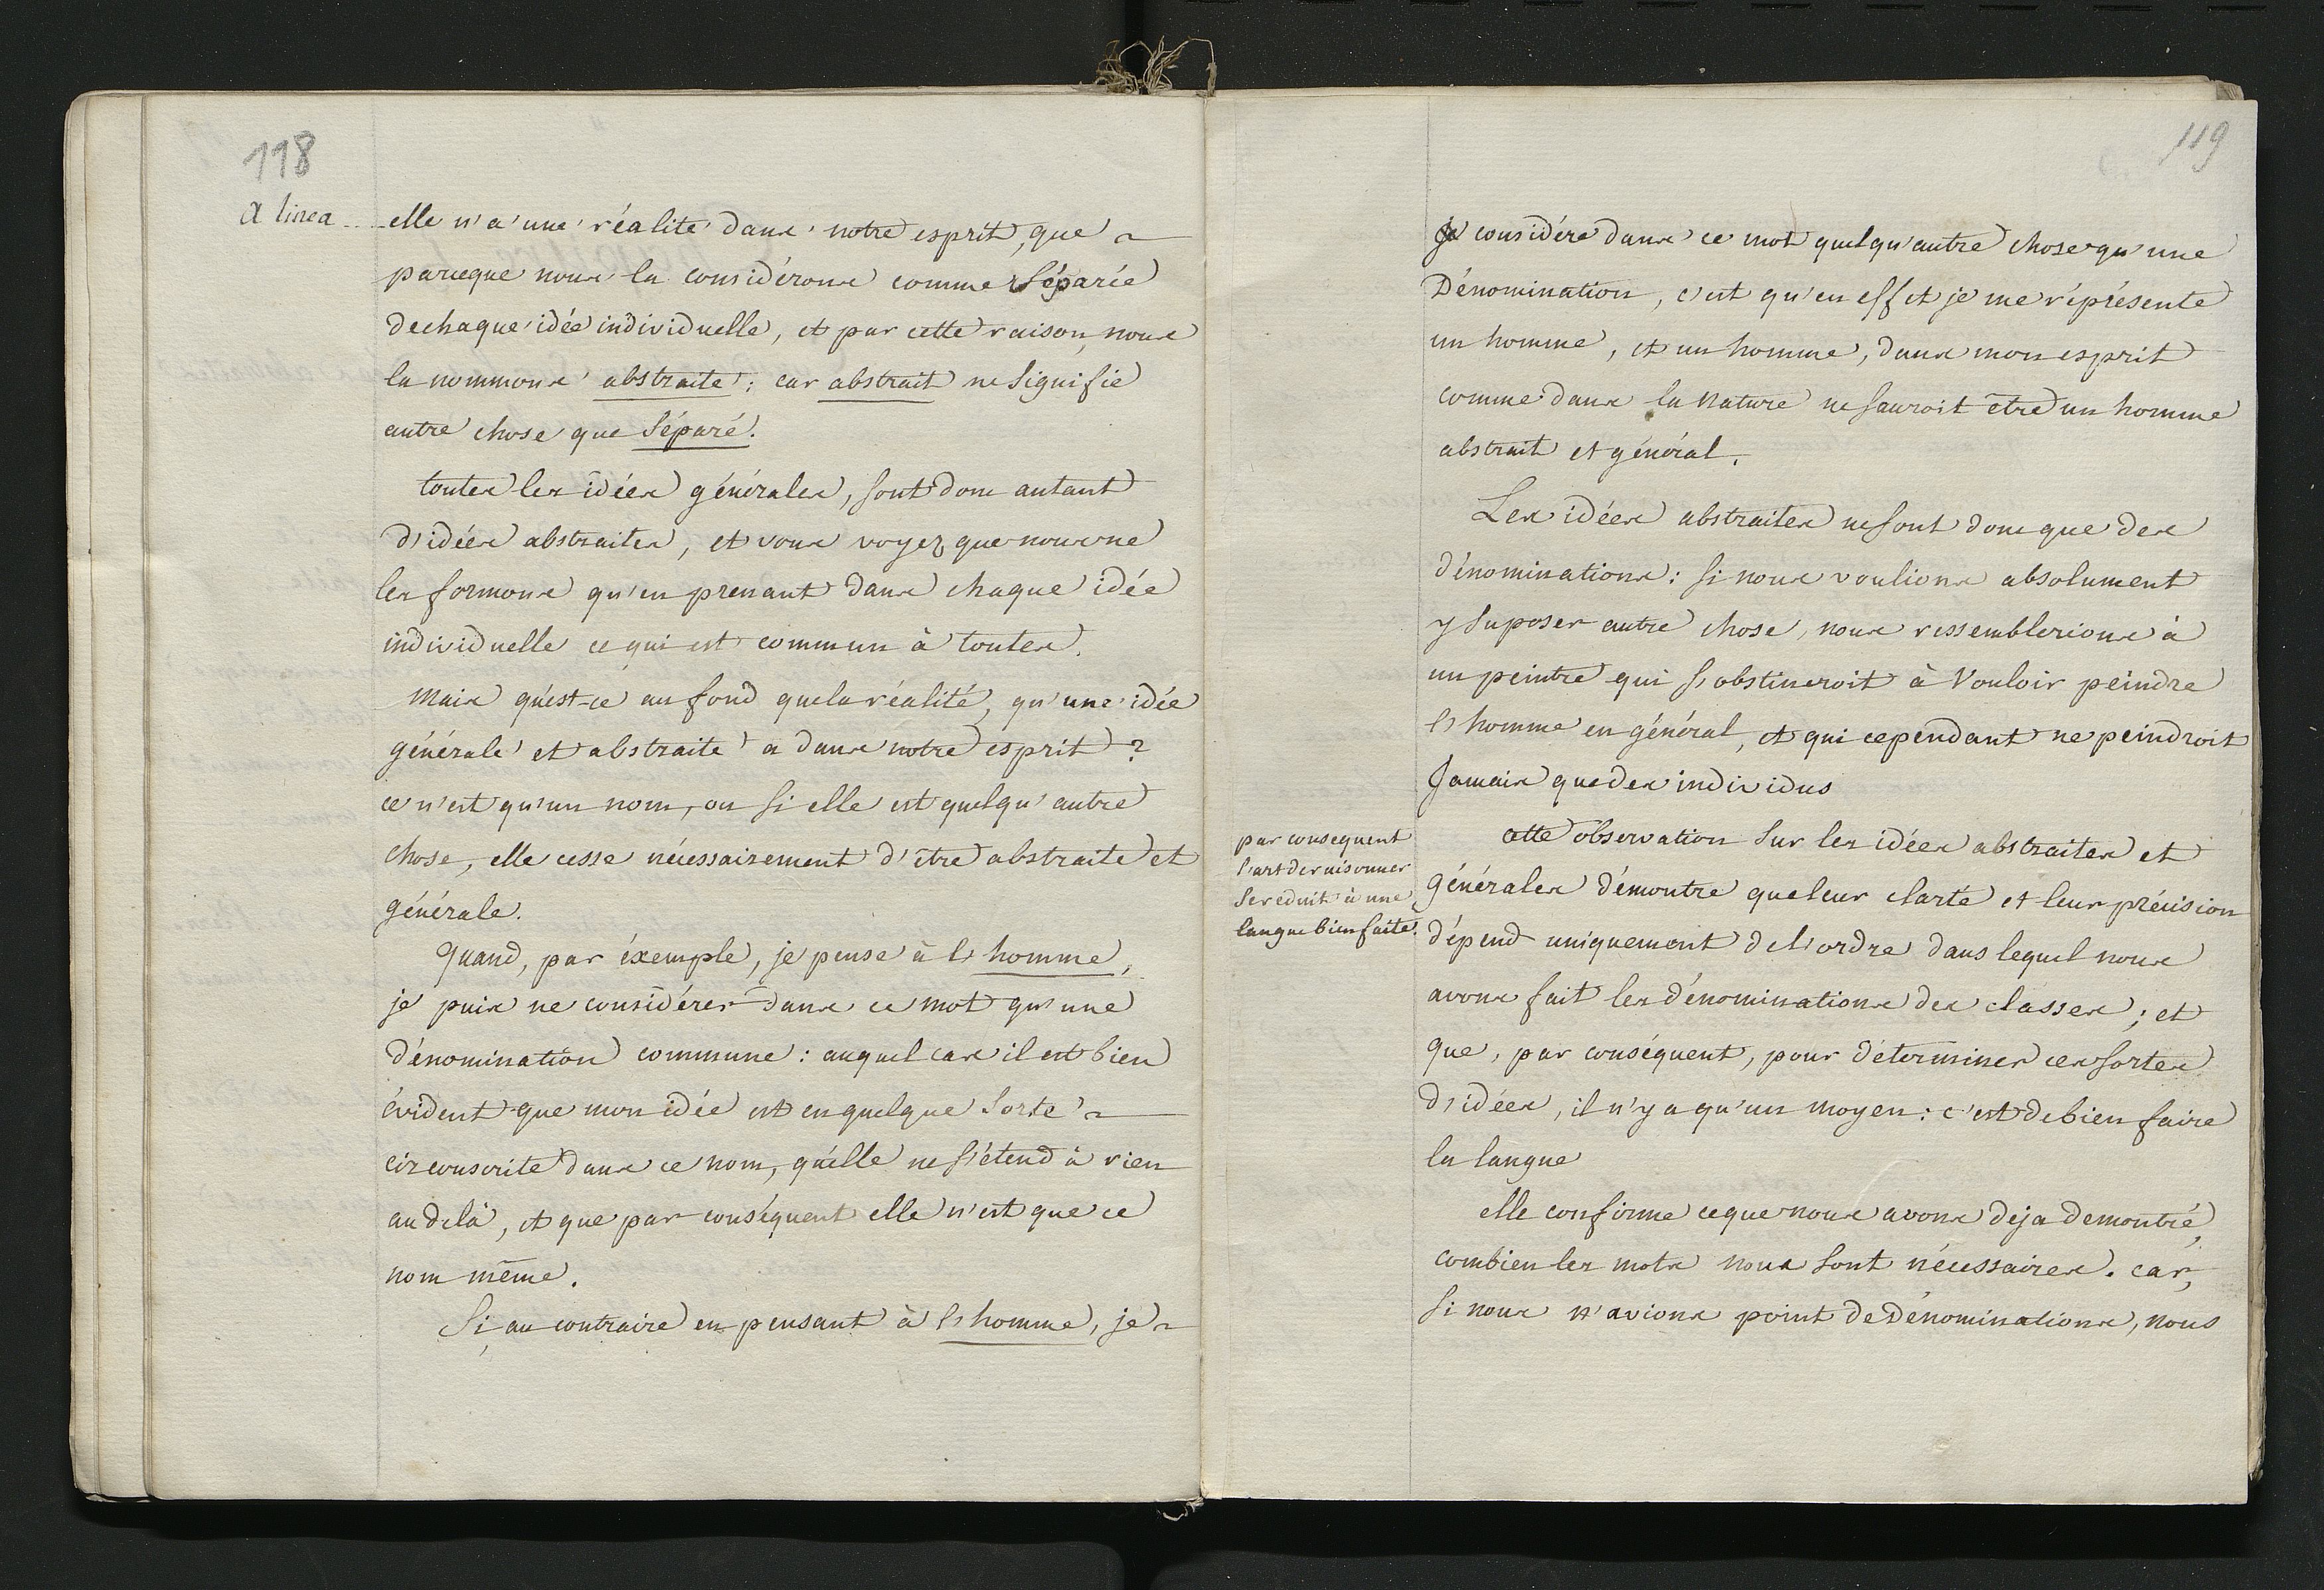 118
a linea
elle n'a une réalité dans notre esprit, que
parceque nous la considérons comme séparée
de chaque idée individuelle, et par cette raison, nous
la nommons abstraite: car abstrait ne signifie
autre chose que séparé.
toutes les idées générales, sont donc autant
d'idées abstraites, et vous voyez que nous ne
les formons qu'en prenant dans chaque idée
individuelle ce qui est commun à toutes.
Mais qu'est-ce au fond que la réalité, qu'une idée
générale et abstraite a dans notre esprit?
ce n'est qu'un nom, ou si elle est quelqu'autre
chose, elle cesse nécessairement d'être abstraite et
générale.
Quand, par éxemple, je pense à l'homme,
je puis ne considérer dans ce mot qu'une
dénomination commune: auquel cas il est bien
évident que mon idée est en quelque sorte
circonscrite dans ce nom, qu'elle ne s'étend à rien
au delà, et que par conséquent elle n'est que ce
nom même.
Si, au contraire en pensant à l'homme, je
119
je considére dans ce mot quelqu'autre chose qu'une
Dénomination, c'est qu'en effet je me réprésente
un homme, et un homme, dans mon esprit
comme dans la Nature ne sauroit être un homme
abstrait et général.
Les idées abstraites ne sont donc que des
dénominations: si nous voulions absolument
y suposer autre chose, nous ressemblerions à
un peintre qui s'obstineroit à Vouloir peindre
l'homme en général, et qui cependant ne peindroit
Jamais que des individus
par consequent
l'art de raisonner
se reduit à une
langue bien faite.
cette observation sur les idées abstraites et
générales démontre que leur clarté et leur précision
dépend uniquement de l'ordre dans lequel nous
avons fait les dénominations des classes; et
que, par conséquent, pour déterminer ces sortes
d'idées, il n'y a qu'un moyen: c'est de bien faire
la langue
elle confirme ce que nous avons deja demontré,
combien les mots nous sont nécessaires. car,
si nous n'avions point de Dénominations, nous